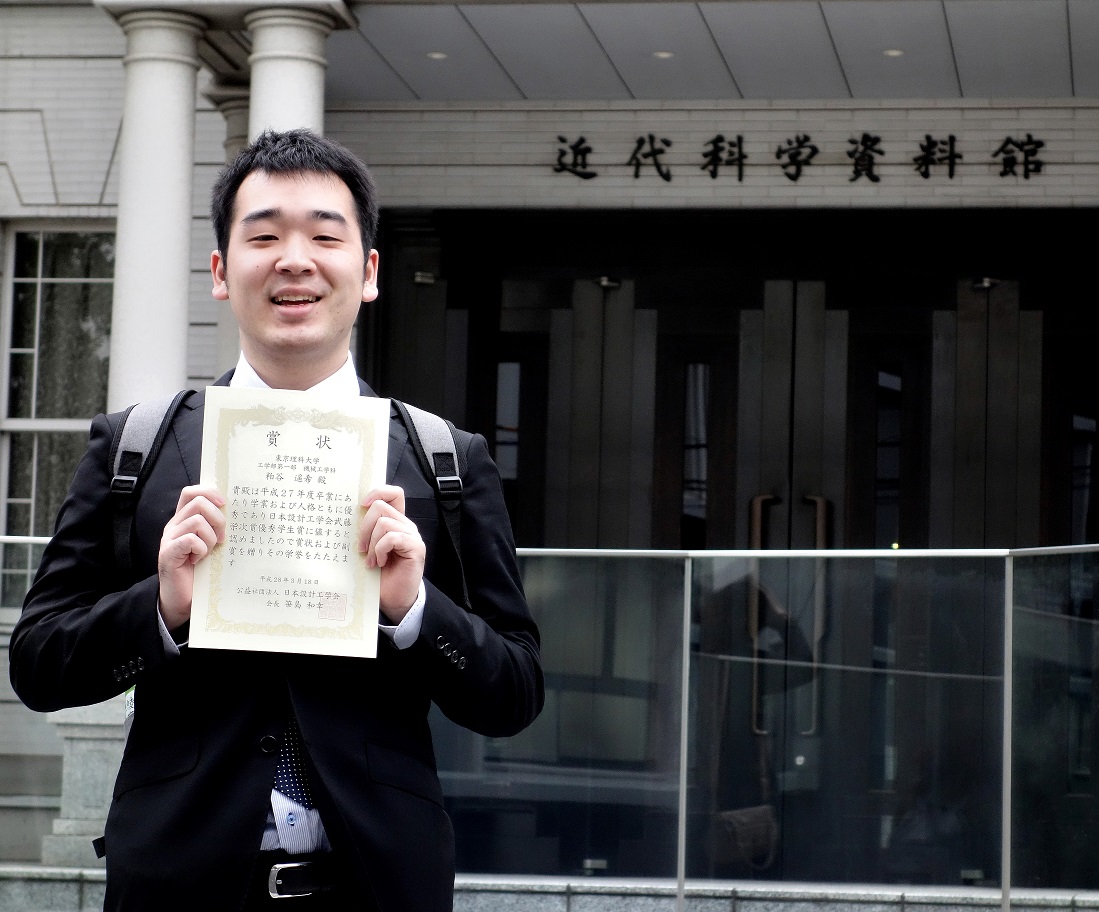 近代科学資料館
賞状
東京理科大学
工学部第一部 機械工学科
粕谷 遥希 殿
貴殿は平成27年度卒業にあ
たり学業および人格ともに優
秀であり日本設計工学会武藤
栄次賞優秀学生賞に値すると
認めましたので賞状および副
賞を贈りその栄誉をたたえま
す
平成28年3月18日
公益社団法人 日本設計工学会
会長 笹島 和幸